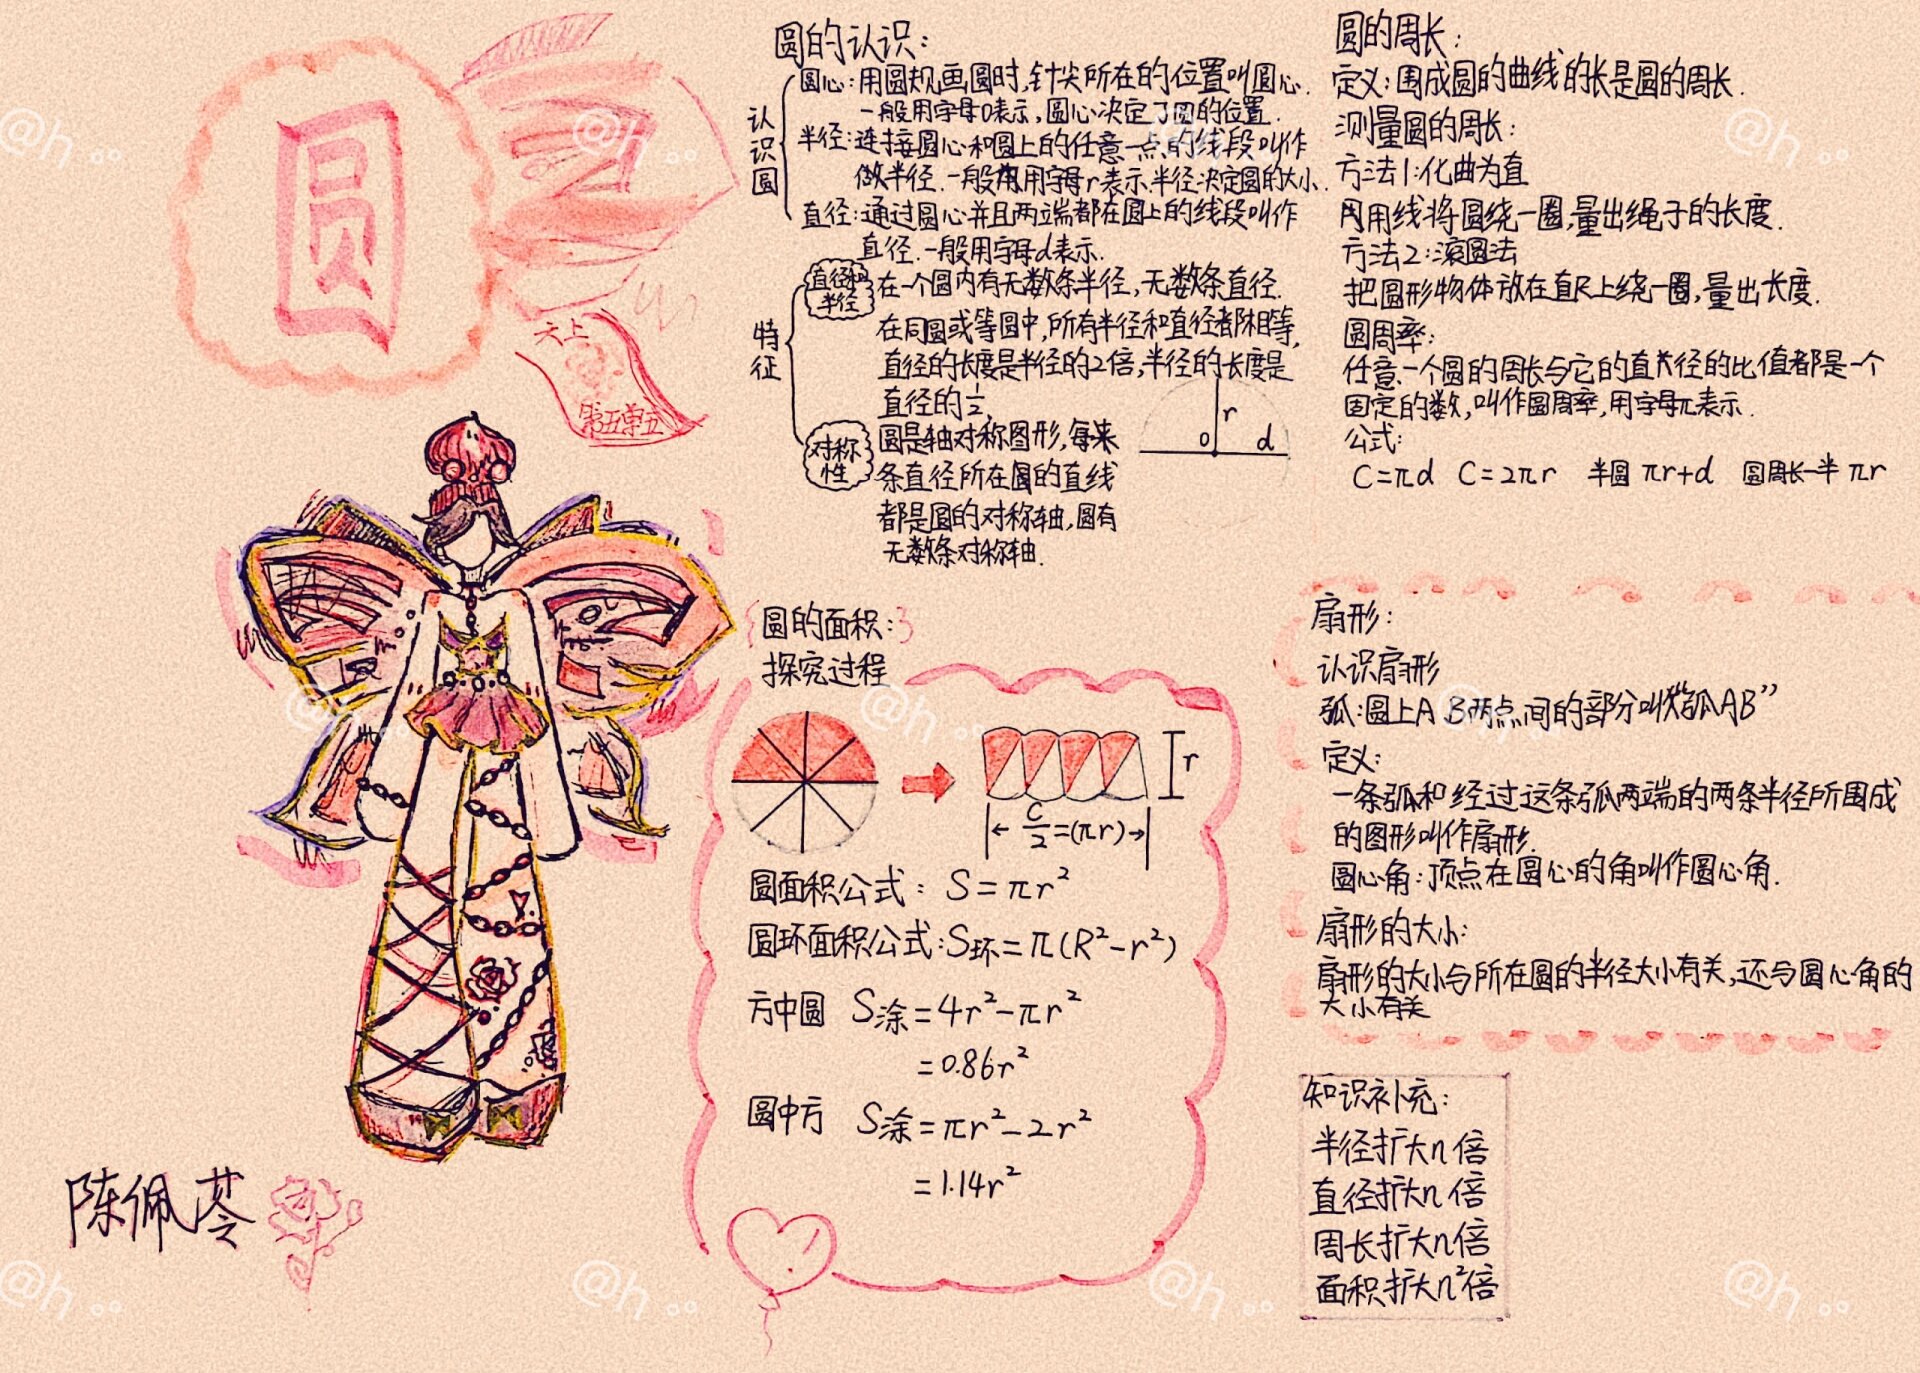 圆
六上
第五单元
陈佩苓
圆的认识:
认识圆
圆心:用圆规画圆时,针尖所在的位置叫圆心.
一般用字母O表示,圆心决定了圆的位置.
半径:连接圆心和圆上的任意一点的线段叫作
做半径.一般用字母r表示.半径决定圆的大小.
直径:通过圆心并且两端都在圆上的线段叫作
直径.一般用字母d表示.
特征
直径和
半径
在一个圆内有无数条半径,无数条直径.
在同圆或等圆中,所有半径和直径都相等,
直径的长度是半径的2倍,半径的长度是
直径的1/2,
对称
性
圆是轴对称图形,每来
条直径所在圆的直线
都是圆的对称轴,圆有
无数条对称轴.
r
O d
圆的周长:
定义:围成圆的曲线的长是圆的周长.
测量圆的周长:
方法1:化曲为直
用线将圆绕一圈,量出绳子的长度.
方法2:滚圆法
把圆形物体放在直尺上绕一圈,量出长度.
圆周率:
任意一个圆的周长与它的直径的比值都是一个
固定的数,叫作圆周率,用字母π表示.
公式:
C=πd C=2πr 半圆 πr+d 圆周长一半 πr
圆的面积:
探究过程
r
C/2=(πr)
圆面积公式: S=πr²
圆环面积公式:S环=π(R²-r²)
方中圆 S涂=4r²-πr²
=0.86r²
圆中方 S涂=πr²-2r²
=1.14r²
扇形:
认识扇形
弧:圆上A B两点间的部分叫“弧AB”
定义:
一条弧和经过这条弧两端的两条半径所围成
的图形叫作扇形.
圆心角:顶点在圆心的角叫作圆心角.
扇形的大小:
扇形的大小与所在圆的半径大小有关,还与圆心角的
大小有关
知识补充:
半径扩大n倍
直径扩大n倍
周长扩大n倍
面积扩大n²倍
@h ..
@h ..
@h ..
@h ..
@h ..
@h ..
@h ..
@h ..
@h ..